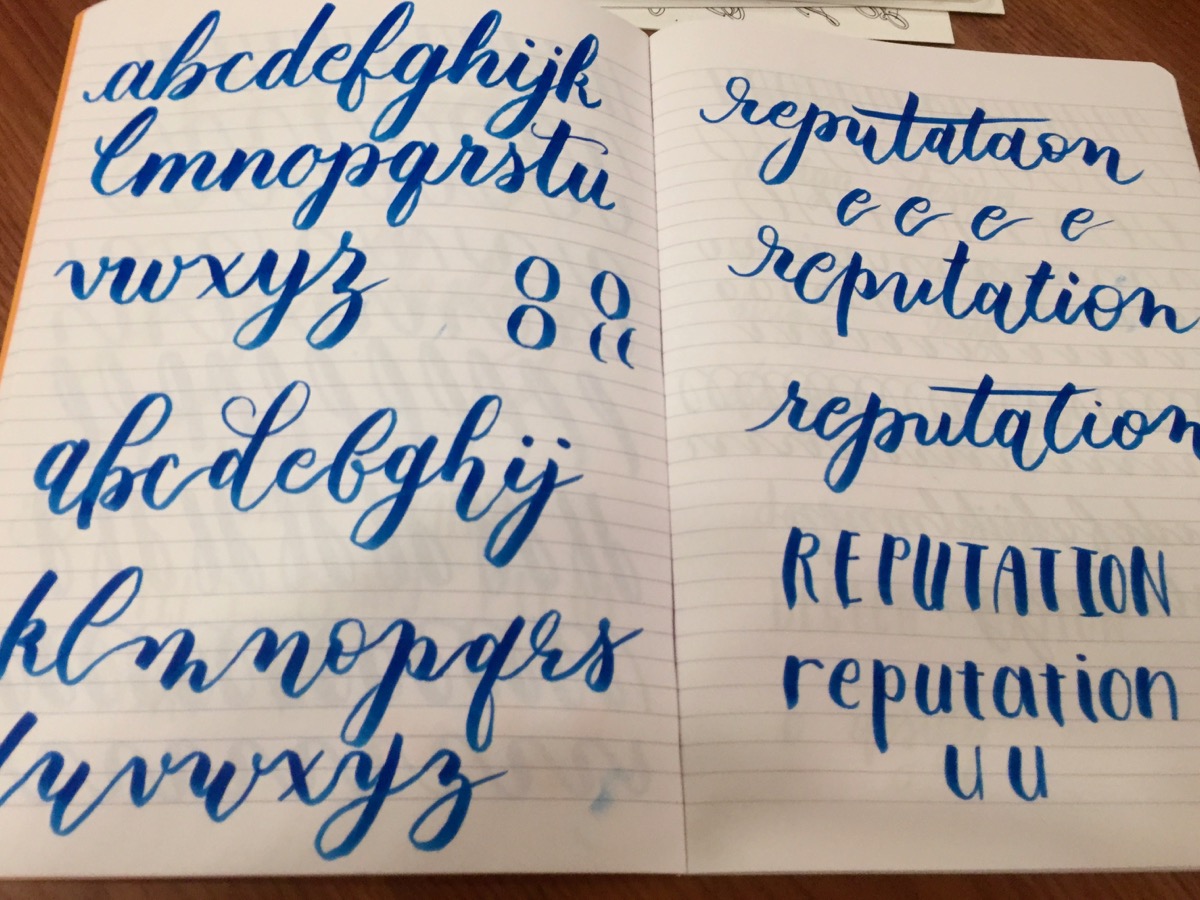 abcdefghijk
lmnopqrstu
vwxyz
O O
O ((
abcdefghij
klmnopqrs
tuvwxyz
reputataon
e e e e
reputation
reputation
REPUTATION
reputation
u u